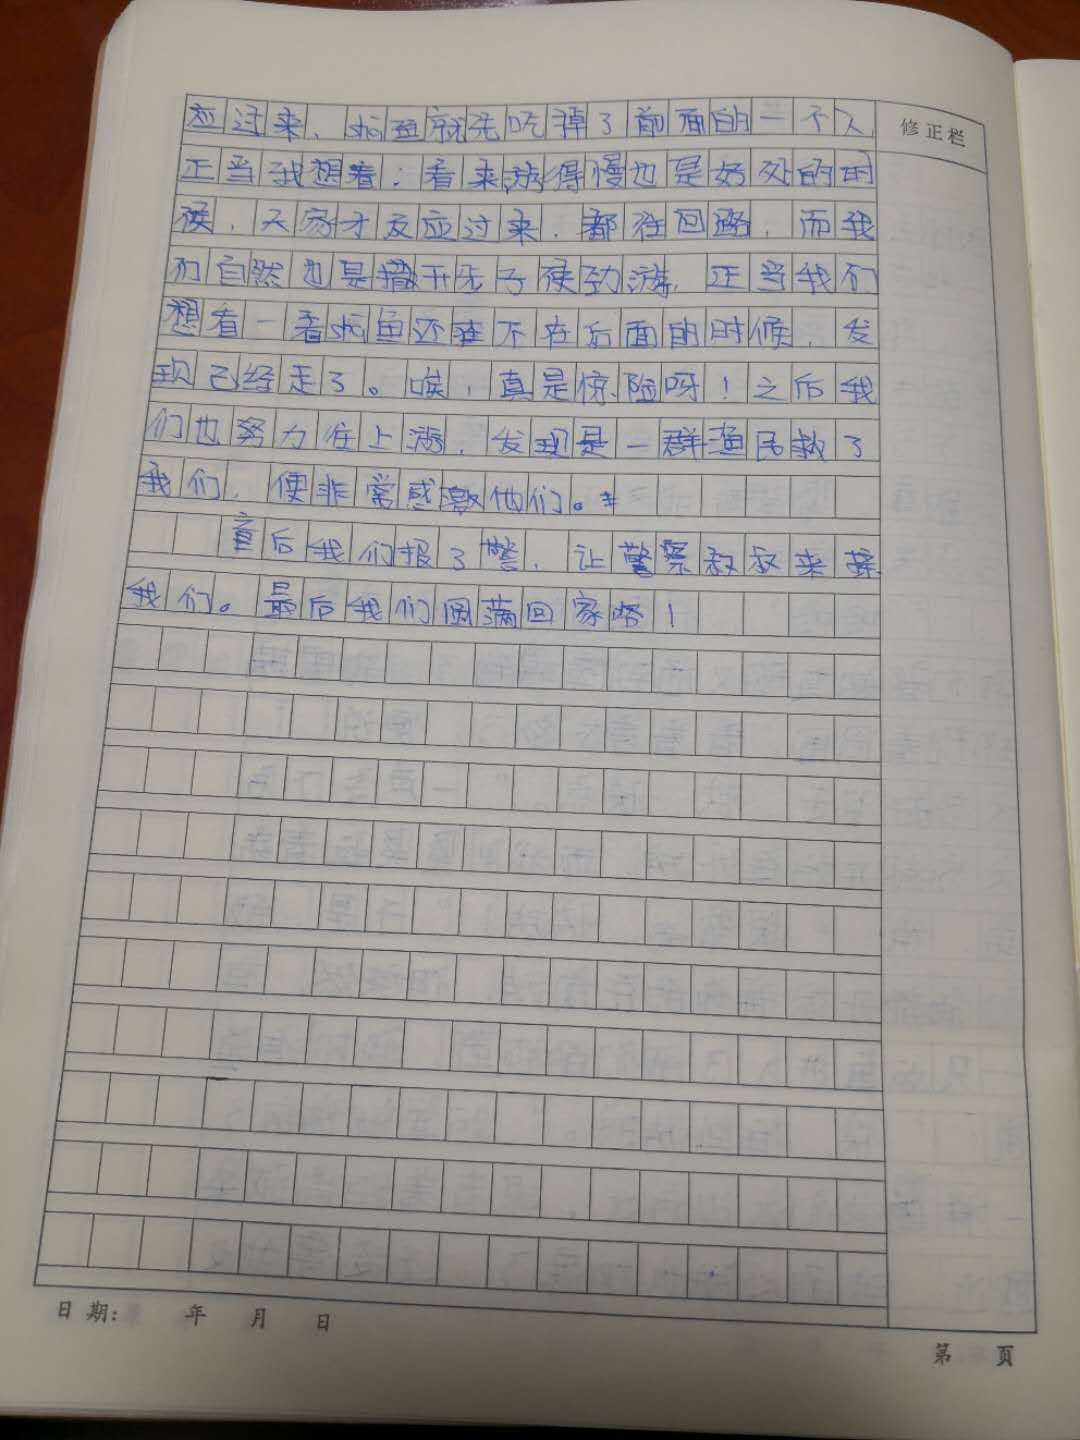 应过来，sha鱼就先吃掉了前面的一个人，
正当我想着：看来游得慢也是好处的时
候，大家才反应过来，都往回路，而我
们自然也是撒开先子使劲游，正当我们
想看一看sha鱼还在不在后面的时候，发
现已经走了。唉，真是惊险呀！之后我
们也努力往上游，发现是一群渔民救了
我们，便非常感激他们。
后我们报了警，让警察叔叔来接
我们。最后我们圆满回家咯！
修正栏
日期： 年 月 日
第 页